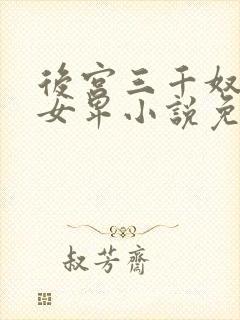 後宮三千奴
女卑小說免
叔芳齋